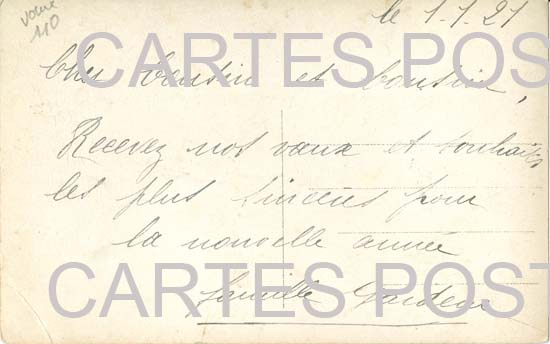 voeux
110
le 1.1.21
Cher Cousin et Cousine,
CARTES POST
Recevez nos vœux et souhaits
les plus sincères pour
la nouvelle année
CARTES POST
famille